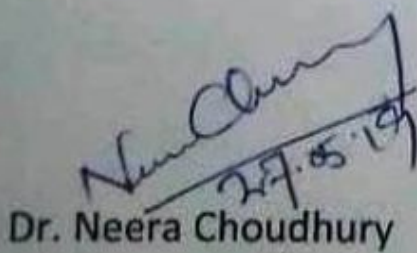 27.05.19
Dr. Neera Choudhury